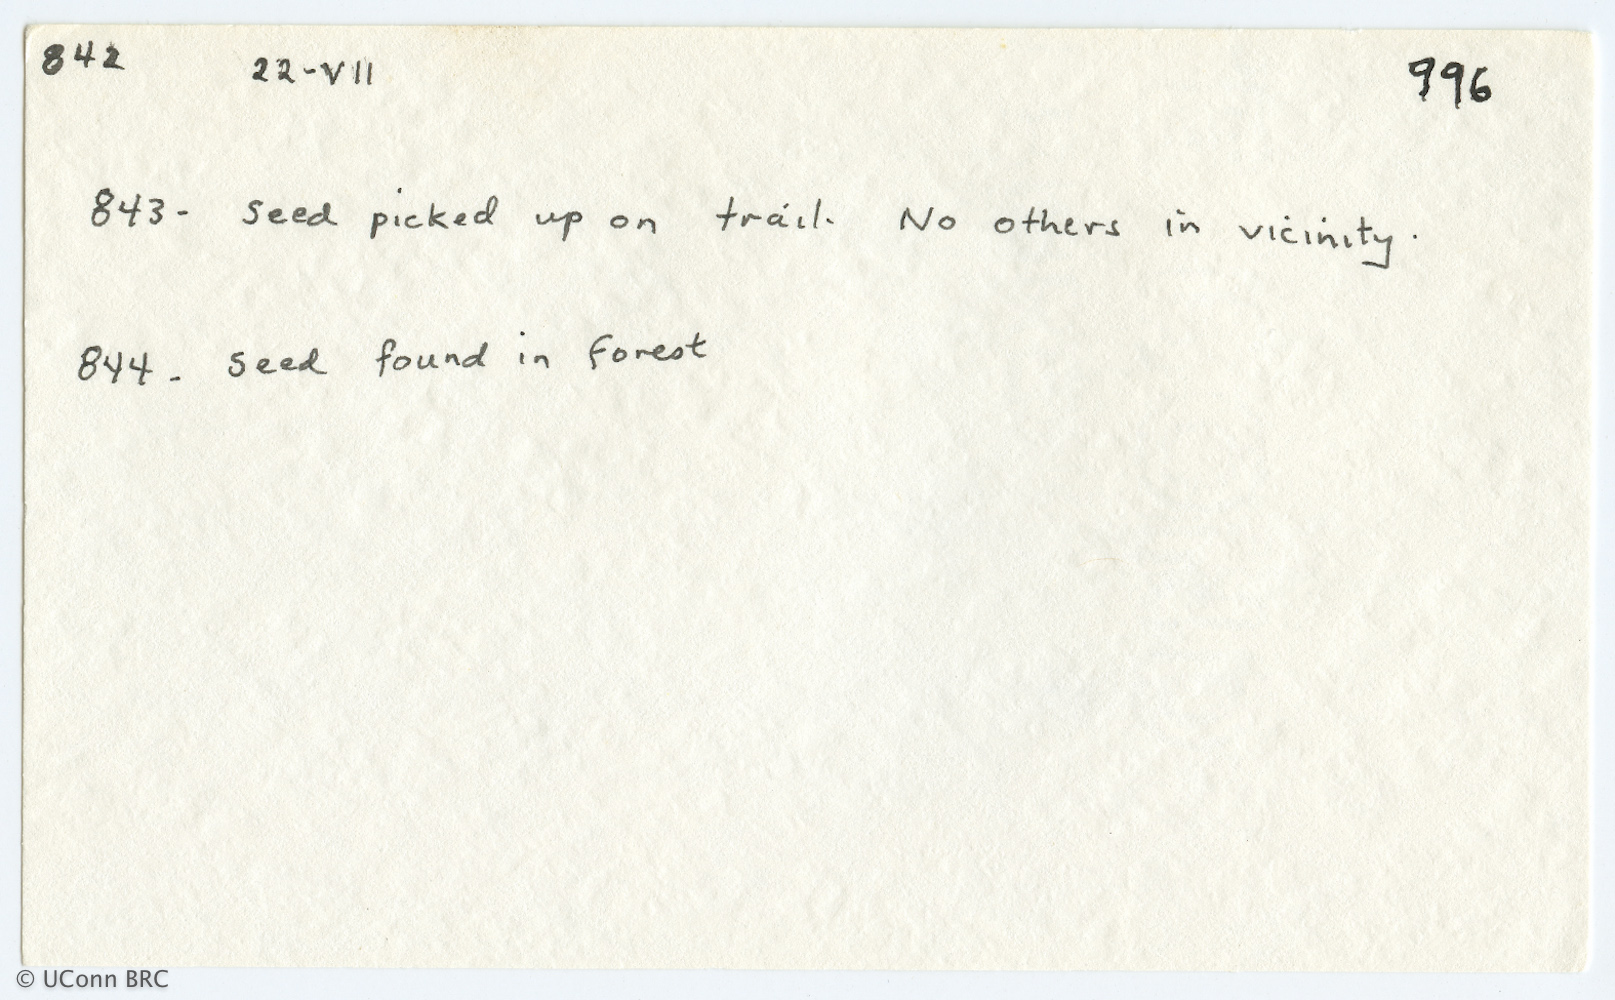 842 22-VII 996
843- Seed picked up on trail. No others in vicinity.
844. Seed found in Forest
© UConn BRC